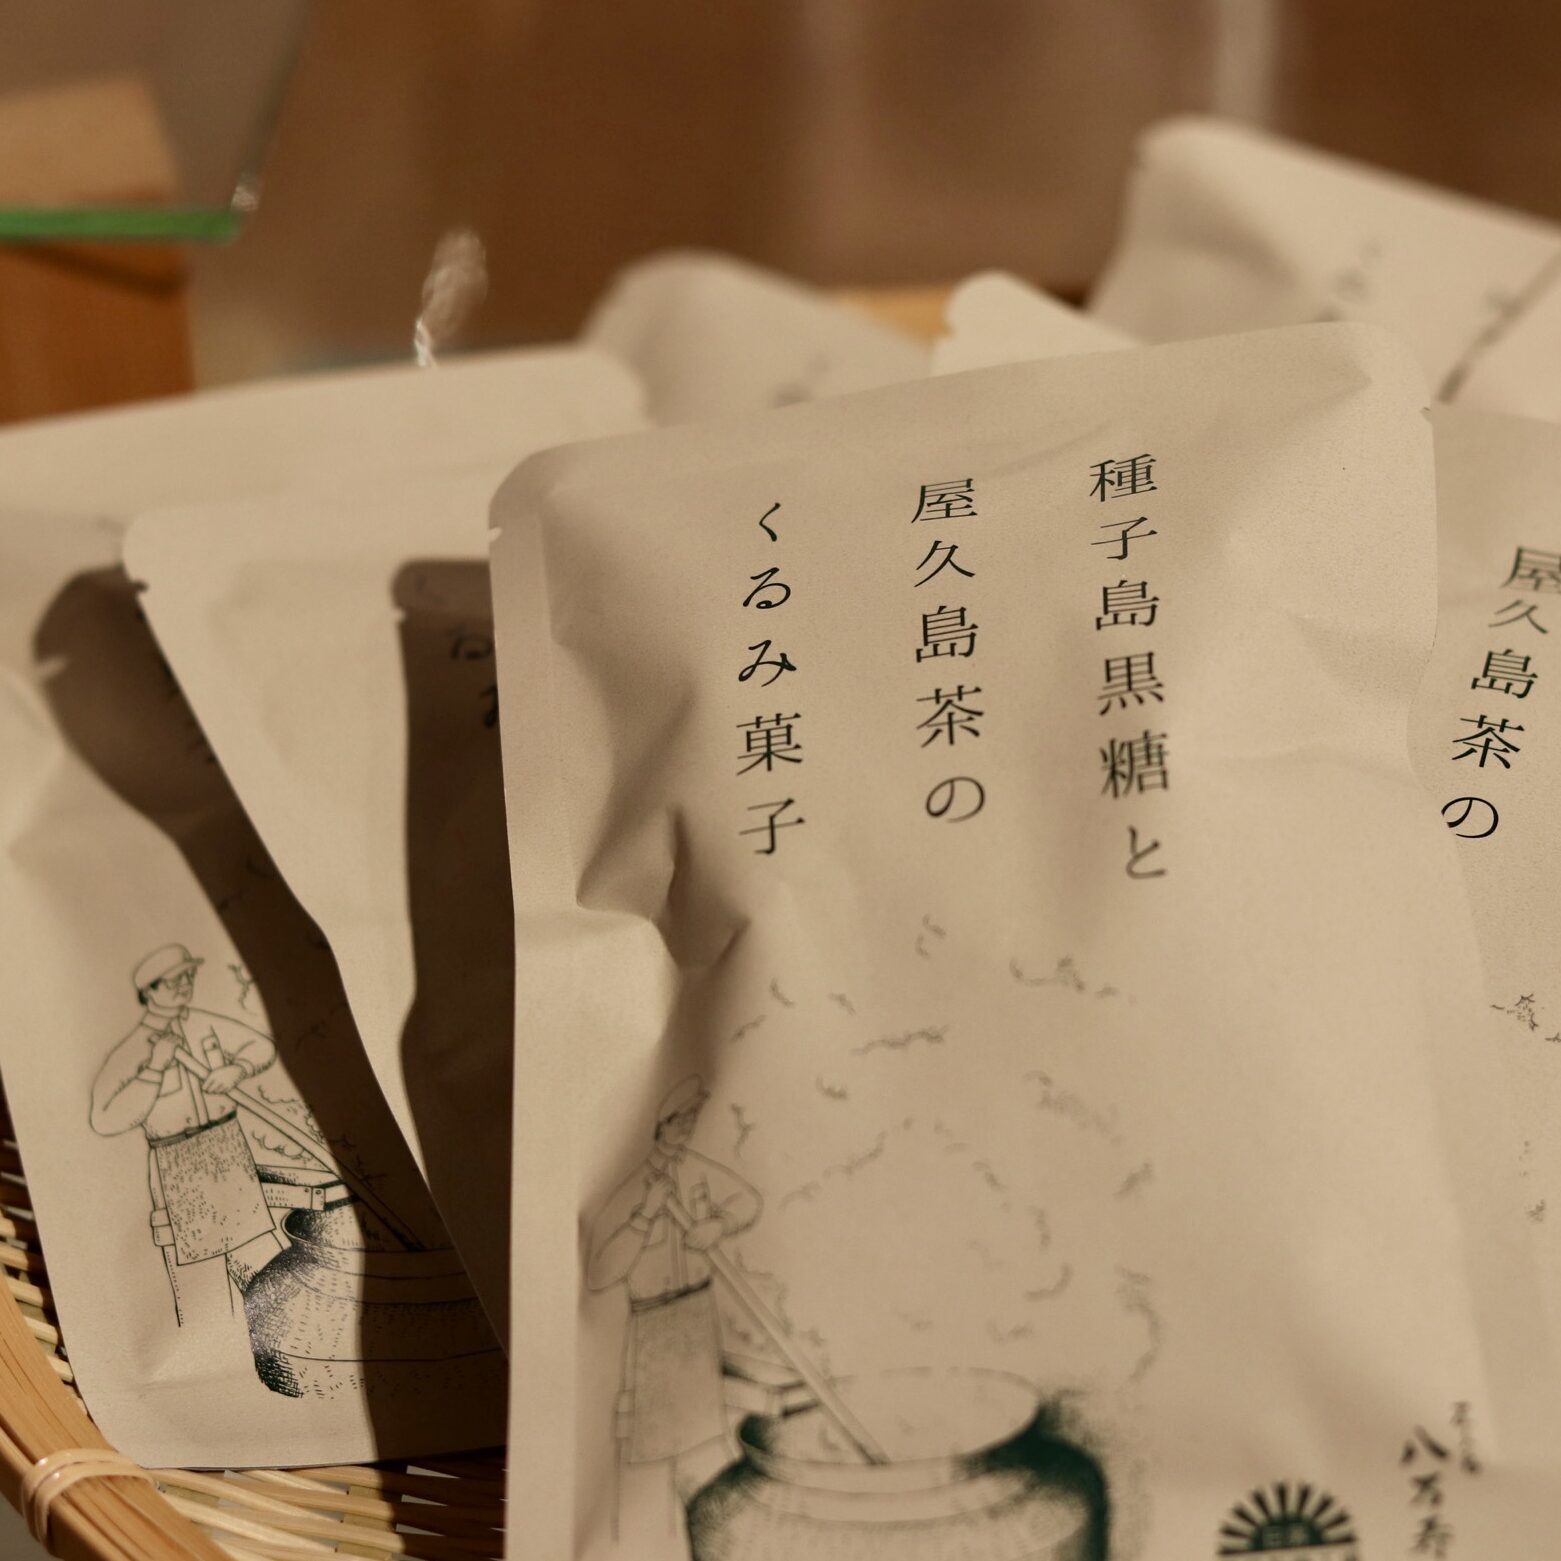 種子島黒糖と
屋久島茶の
くるみ菓子
屋久島茶の
八万寿